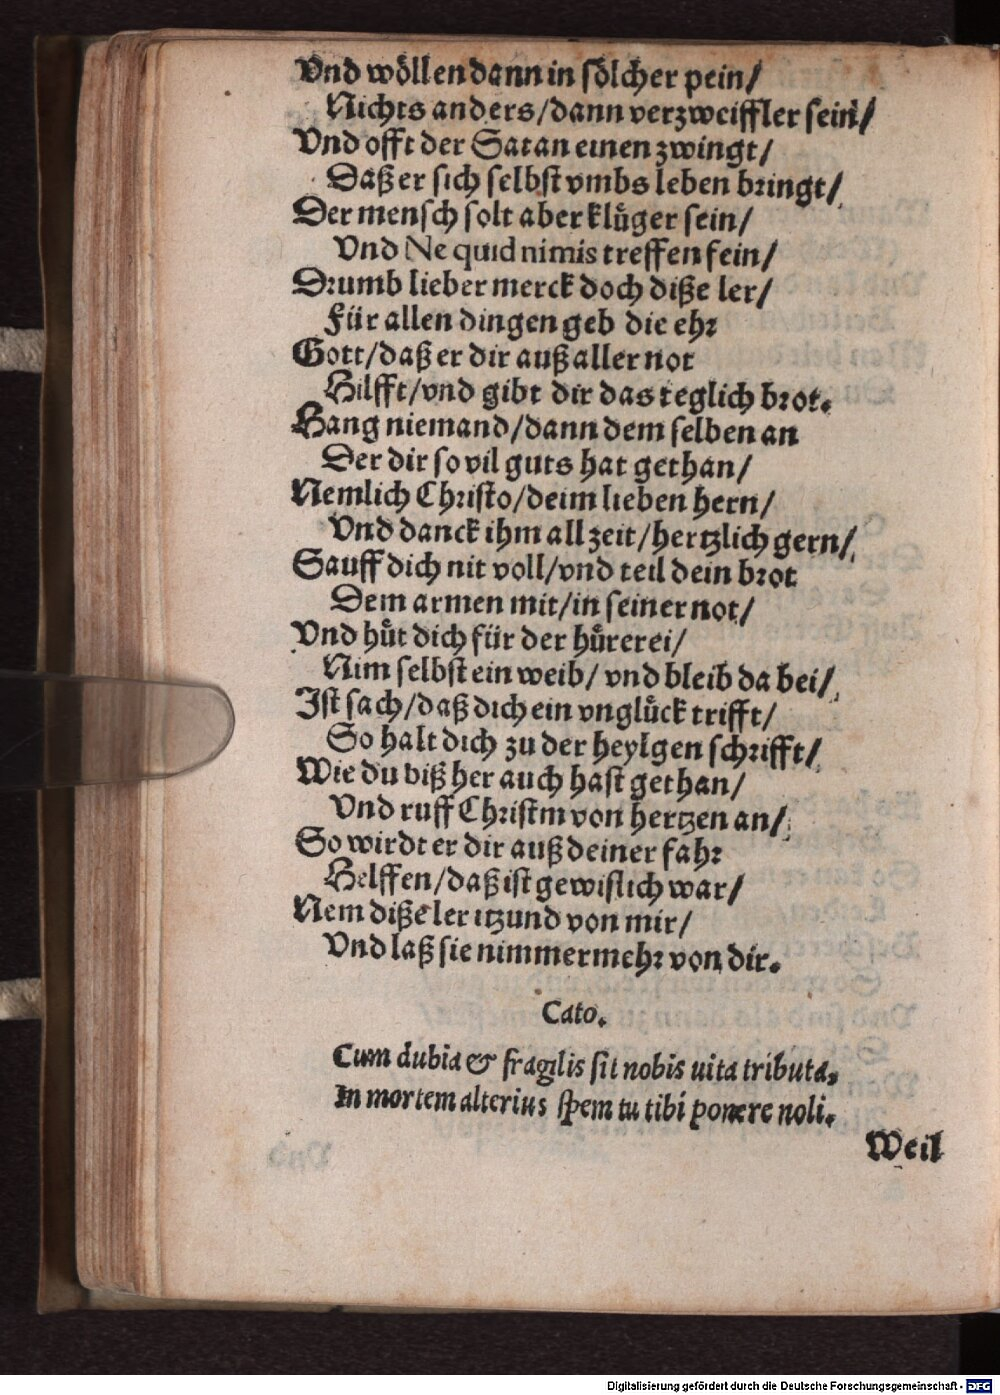 Vnd wöllen dann in sölcher pein/
Nichts anders/dann verzweiffler sein/
Vnd offt der Satan einen zwingt/
Daß er sich selbst vmbs leben bringt/
Der mensch solt aber klůger sein/
Vnd Ne quid nimis treffen fein/
Drumb lieber merck doch diße ler/
Für allen dingen geb die ehr
Gott/daß er dir auß aller not
Hilfft/vnd gibt dir das teglich brot.
Hang niemand/dann dem selben an
Der dir so vil guts hat gethan/
Nemlich Christo/deim lieben hern/
Vnd danck ihm all zeit/hertzlich gern/
Sauff dich nit voll/vnd teil dein brot
Dem armen mit/in seiner not/
Vnd hůt dich für der hůrerei/
Nim selbst ein weib/ vnd bleib da bei/
Ist sach/daß dich ein vnglůck trifft/
So halt dich zu der heylgen schrifft/
Wie du biß her auch hast gethan/
Vnd ruff Christm von hertzen an/
So wirdt er dir auß deiner fahr
Helffen/daß ist gewißlich war/
Nem diße ler itzund von mir/
Vnd laß sie nimmermehr von dir.
Cato.
Cum dubia & fragilis sit nobis uita tributa,
In mortem alterius spem tu tibi ponere noli.
Weil
Digitalisierung gefördert durch die Deutsche Forschungsgemeinschaft - DFG